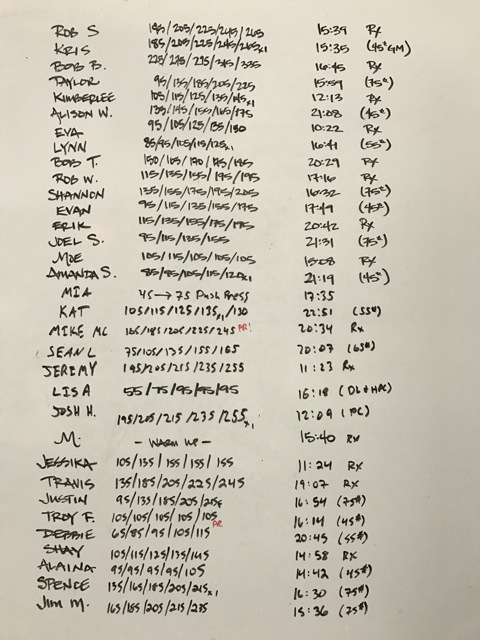 ROB S 185/205/225/245/265 15:39 Rx
KRIS 185/205/225/245/265x1 15:35 (45# GM)
BOB B. 225/275/335 16:45 Rx
TAYLOR 95/135/185/205/225 15:59 (75#)
KIMBERLEE 105/115/125/135/145x1 12:13 Rx
ALISON W. 135/145/155/165/175 21:08 (45#)
EVA 95/105/125/135/150 10:22 Rx
LYNN 85/95/105/115/125x1 16:41 (55#)
BOB T. 20:29 Rx
ROB W. 115/135/155/175/195 17:16 Rx
SHANNON 135/155/175/195/205 16:32 (75#)
EVAN 95/115/135/155/175 17:49 (45#)
ERIK 115/135/155/175/195 20:42 Rx
JOEL S. 95/115/135/155 21:31 (75#)
MOE 105/115/105/105/105 15:08 Rx
AMANDA S. 85/95/105/115/120x1 21:19 (45#)
MIA 45→75 Push Press 17:35
KAT 105/115/125/135x1/130 22:51 (55#)
MIKE MC 165/185/205/225/245 PR! 20:34 Rx
SEAN L 75/105/135/155/165 20:07 (65#)
JEREMY 195/205/215/235/255 11:23 Rx
LISA 55/75/95/95/95 16:18 (DL & HPC)
JOSH H. 195/205/215/235/255x1 12:09 (PC)
M. - WARM UP - 15:40 Rx
JESSIKA 105/135/155/155/155 11:24 Rx
TRAVIS 135/185/205/225/245 19:07 Rx
JUSTIN 95/135/185/205/215 16:54 (75#)
TROY F. 105/105/105/105/105 16:14 (45#)
DEBBIE 65/85/95/105/115 PR 20:45 (55#)
SHAY 105/115/125/135/145 14:58 Rx
ALAINA 95/95/95/95/105 14:42 (45#)
SPENCE 135/165/185/205/215x1 16:30 (75#)
JIM M. 165/185/205/215/235 15:36 (75#)